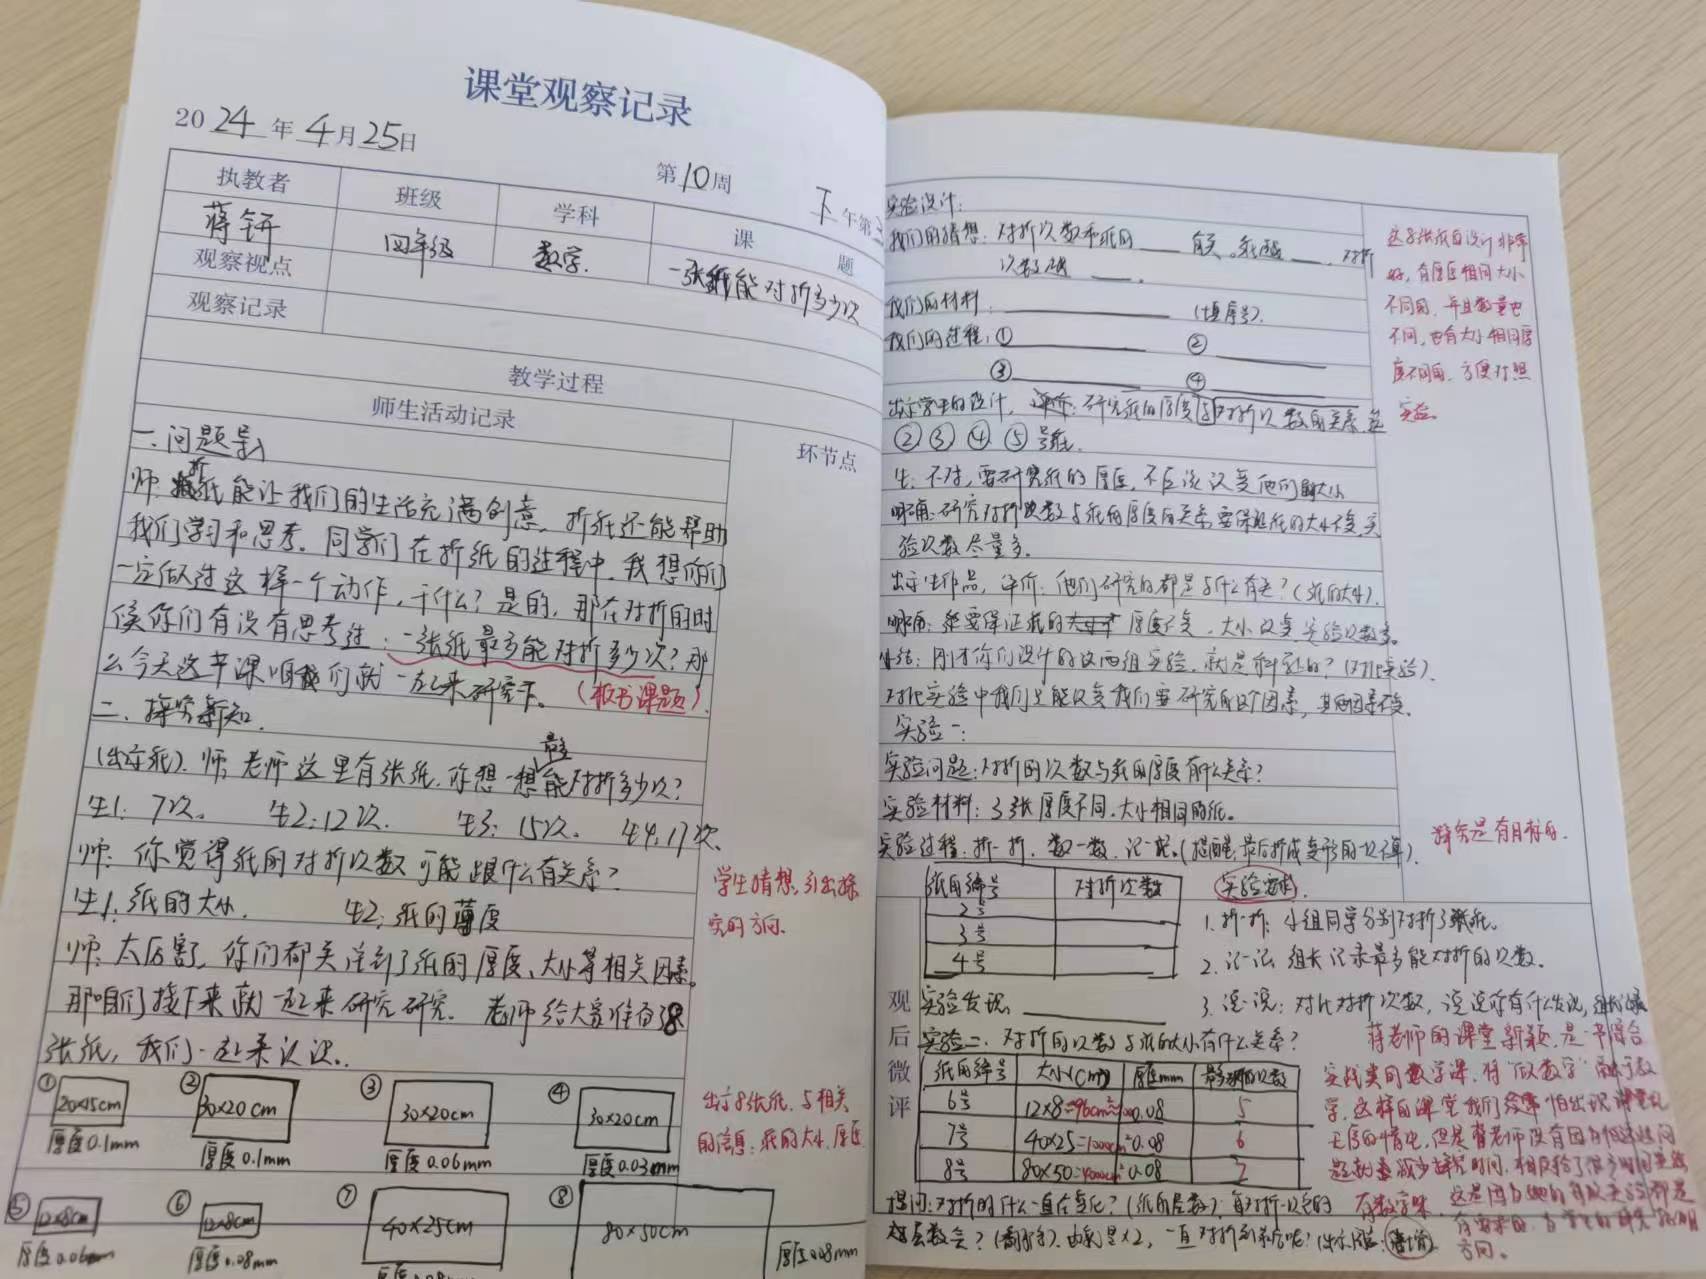 课堂观察记录
2024年4月25日
第10周
下午第
执教者
班级
学科
课题
蒋钘
四年级
数学
一张纸能对折多少次
观察视点
观察记录
教学过程
师生活动记录
环节点
一、问题导入
师:折纸能让我们的生活充满创意,折纸还能帮助
我们学习和思考。同学们在折纸的过程中,我想你们
一定做过这样一个动作,干什么?是的,那在对折的时
候你们有没有思考过:一张纸最多能对折多少次?那
么今天这节课咱们就一起来研究下。(板书课题)
二、探究新知
(出示纸)师:老师这里有张纸,你想一想最多能对折多少次?
生1:7次。 生2:12次. 生3:15次。 生4:17次
师:你觉得纸的对折次数可能跟什么有关系?
生1:纸的大小. 生2:纸的薄度
学生猜想,引出探
究的方向.
师:太厉害,你们都关注到了纸的厚度、大小等相关因素
那咱们接下来就一起来研究研究。老师给大家准备了8
张纸,我们一起来认识.
出示8张纸,与相关
的信息:纸的大小,厚度
① 20×15cm 厚度0.1mm
② 30×20cm 厚度0.1mm
③ 30×20cm 厚度0.06mm
④ 30×20cm 厚度0.03mm
⑤ 12×8cm 厚度0.06mm
⑥ 12×8cm 厚度0.08mm
⑦ 40×25cm 厚度0.08mm
⑧ 80×50cm 厚度0.08mm
实验设计:
我们的猜想:对折次数和纸的____有关。纸越____,对折
次数越____.
我们的材料:____(填序号).
我们的过程:①____ ②____
③____ ④____
这8张纸的设计非常
好,有厚度相同大小
不同的,并且数量也
不同,也有大小相同厚
度不同的,方便对照
实验.
出示学生的设计,评价:研究纸的厚度与对折次数的关系,选
②③④⑤号纸.
生:不对,要研究纸的厚度,不应该改变他们的大小
明确:研究对折次数与纸的厚度的关系要保证纸的大小不变,实
验次数尽量多.
出示生作品,评价:他们研究的都是与什么有关?(纸的大小).
明确:要保证纸的厚度不变,大小改变,实验次数多.
小结:刚才你们设计的这两组实验,就是科学的?(对比实验).
对比实验中我们只能改变我们要研究的这个因素,其他因素不变.
实验一:
实验问题:对折的次数与纸的厚度有什么关系?
实验材料:3张厚度不同.大小相同的纸。
实验过程:折一折,数一数,记一记.(提醒:最后折成变形的不算).
探究是有目标的.
纸的编号 对折次数
2号
3号
4号
实验要求
1.折一折:小组同学分别对折3张纸。
2.记一记:组长记录最多能对折的次数.
3.说一说:对比对折次数,说说你有什么发现,
实验发现:____
实验二:对折的次数与纸的大小有什么关系?
纸的编号 大小(cm²) 厚度mm 最多对折的次数
6号 12×8=96cm² 0.08 5
7号 40×25=1000cm² 0.08 6
8号 80×50=4000cm² 0.08 7
提问:对折时什么一直在变化?(纸的层数).每对折一次它的
层数会?(翻倍).也就是×2,一直对折到第
观后微评
蒋老师的课堂新颖,是一节综合
实践类的数学课,将"做数学"融于数
学,这样的课堂我们经常怕出现课堂乱
无序的情况,但是蒋老师没有因为
减少探究时间,相反给了很多时间
有数学味.
方向。